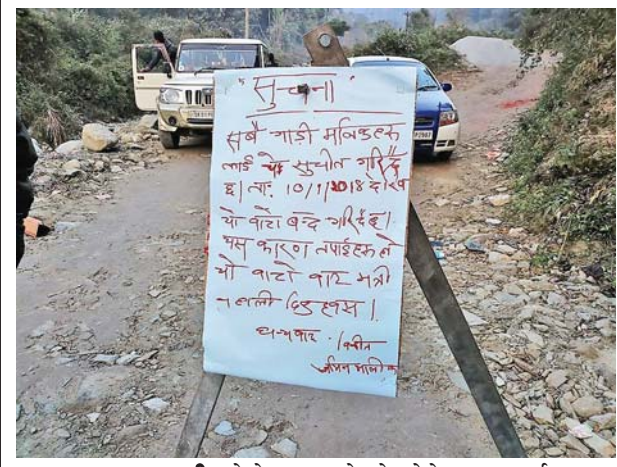 "सुचना"
सबै गाडी मलिकहरु
लाई यो सुचीत गरिदै
छ। ता: 10/1/2018 देखि
यो बाटो बन्द गरिदैछ।
यस कारण तपाईहरु ले
यो बाटो बाट
नलाली दिनु हवस।
धन्यवाद।
जमिन मालीक